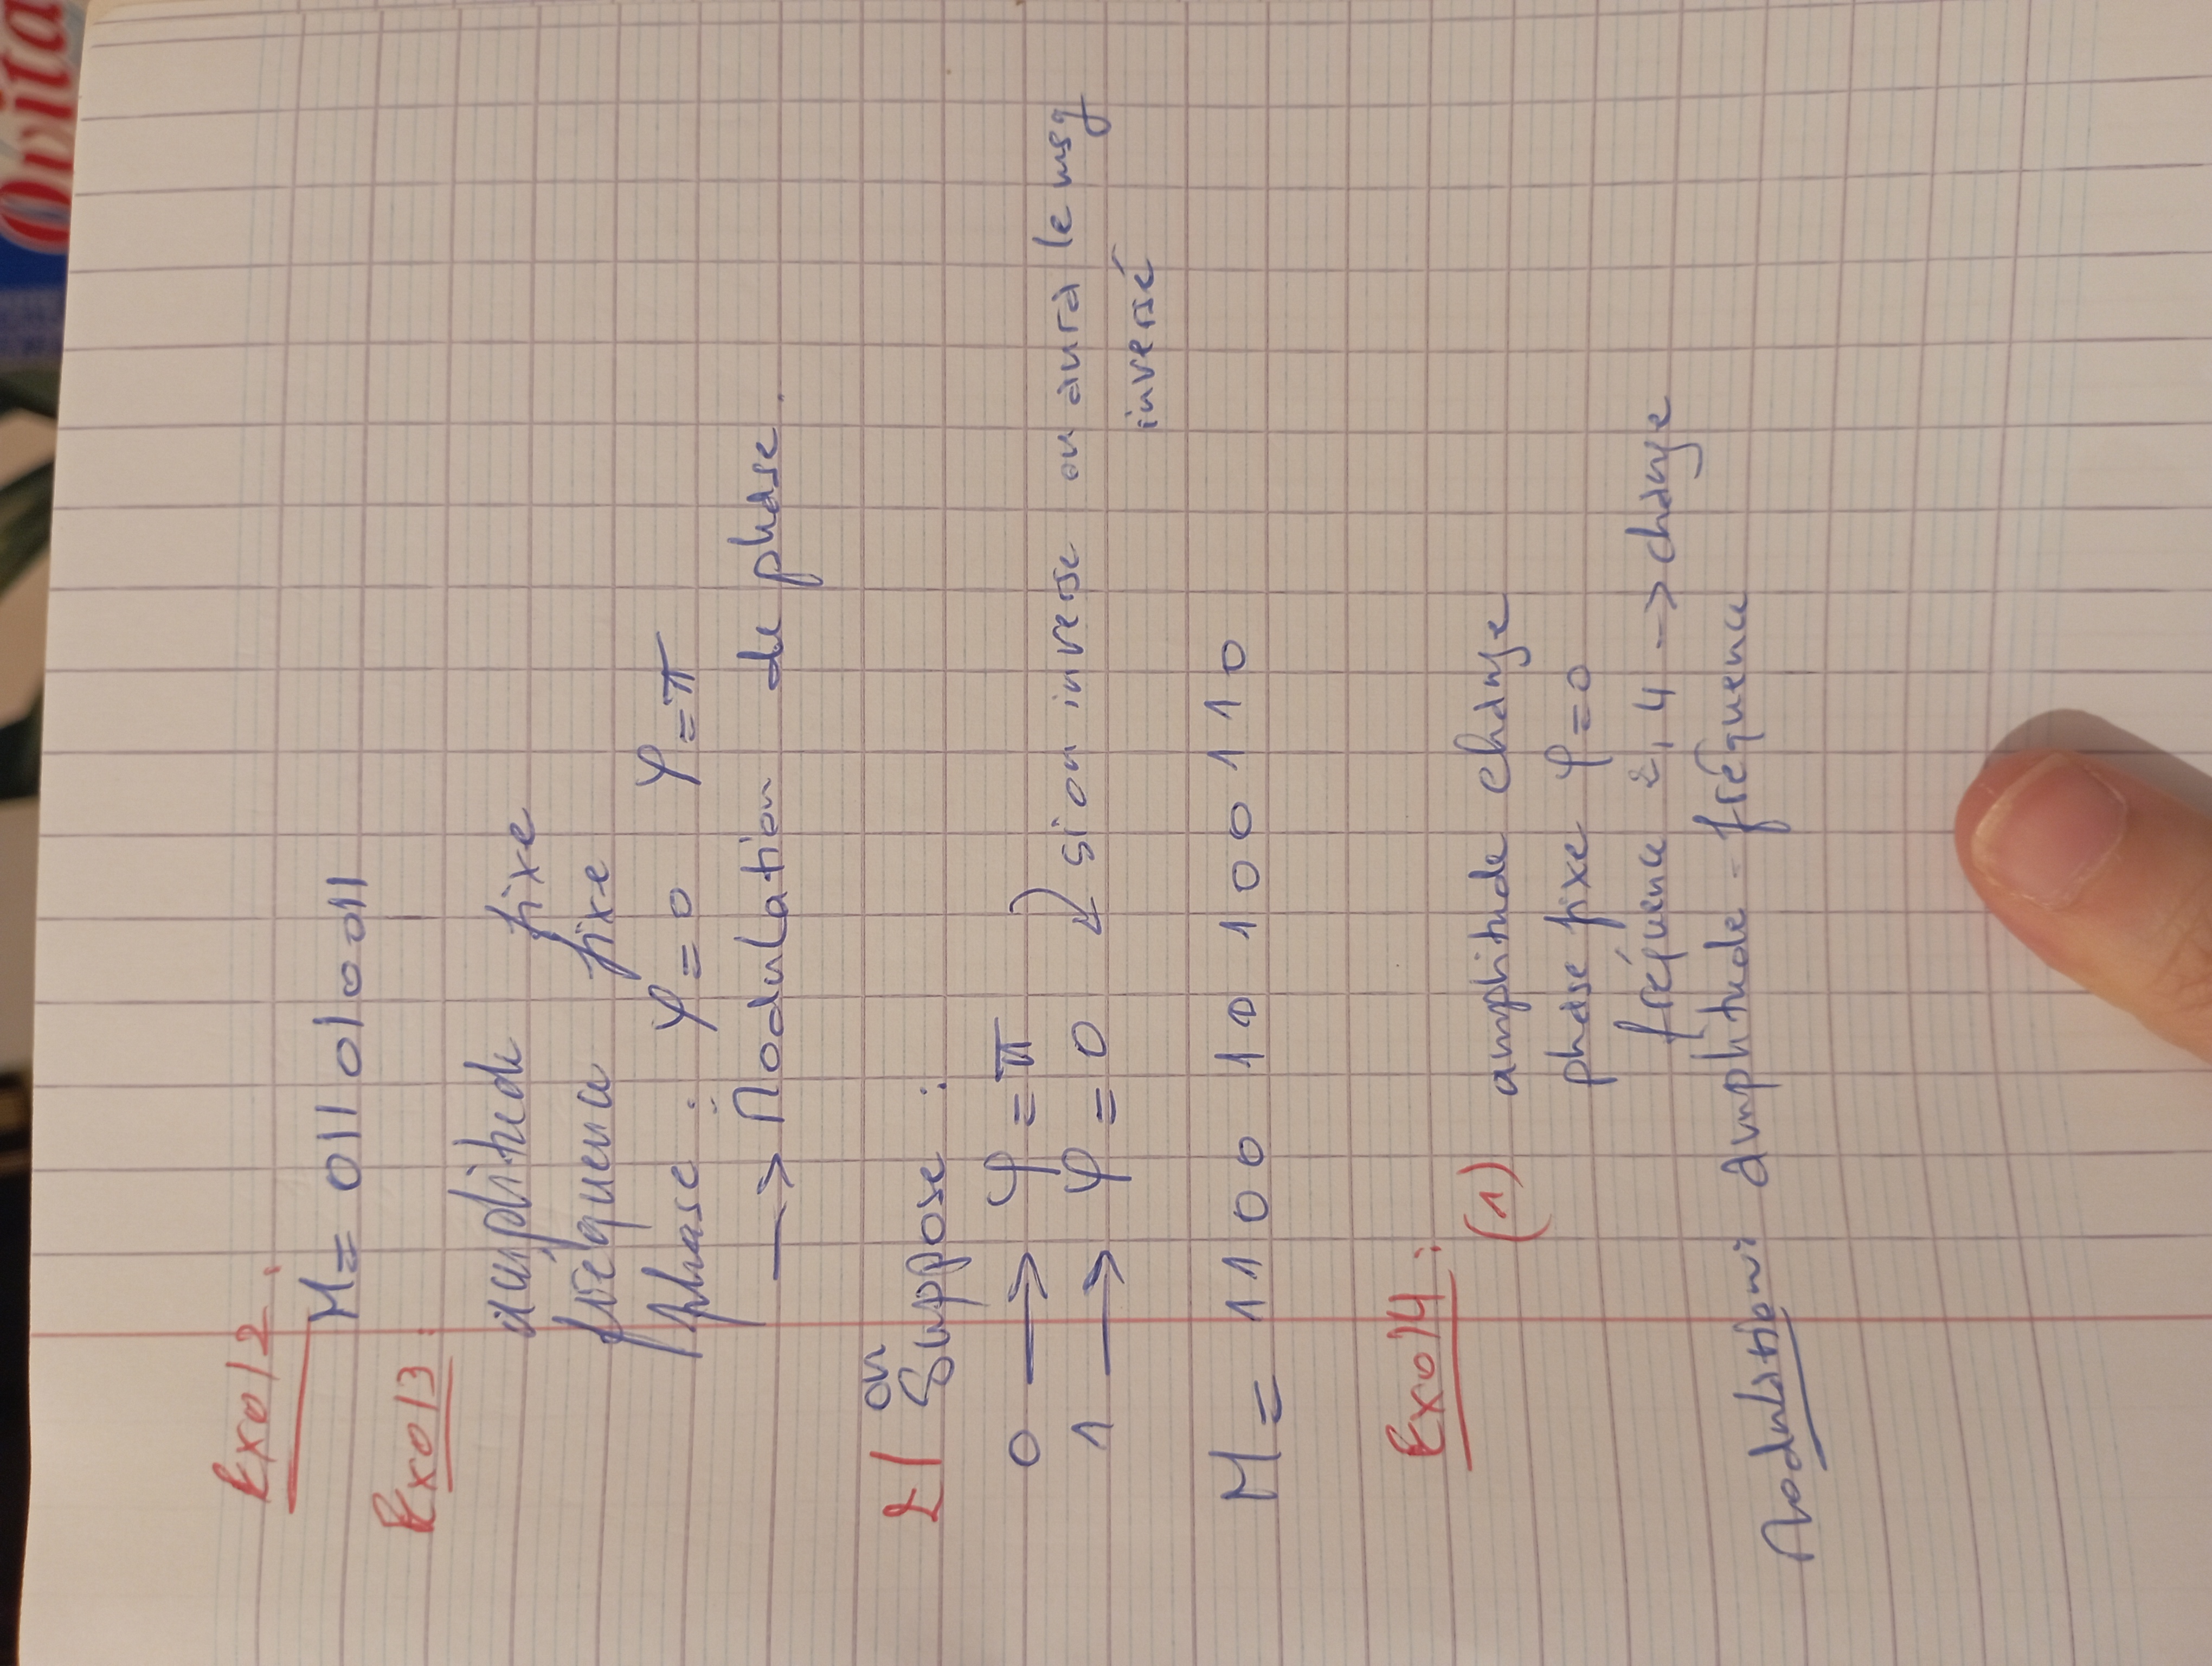 Ovita
Exo 12 :
M = 011 010011
Exo 13 :
amplitude fixe
fréquence fixe
phase : φ = 0 φ = π
—> Modulation de phase.
2/ on
Suppose :
0 —> φ = π
1 —> φ = 0 si on inverse on aura le msg
inversé
M = 1100 10 100110
Exo 14 :
(1) amplitude change
phase fixe φ = 0
fréquence 2, 4 -> change
Modulation: amplitude - fréquence